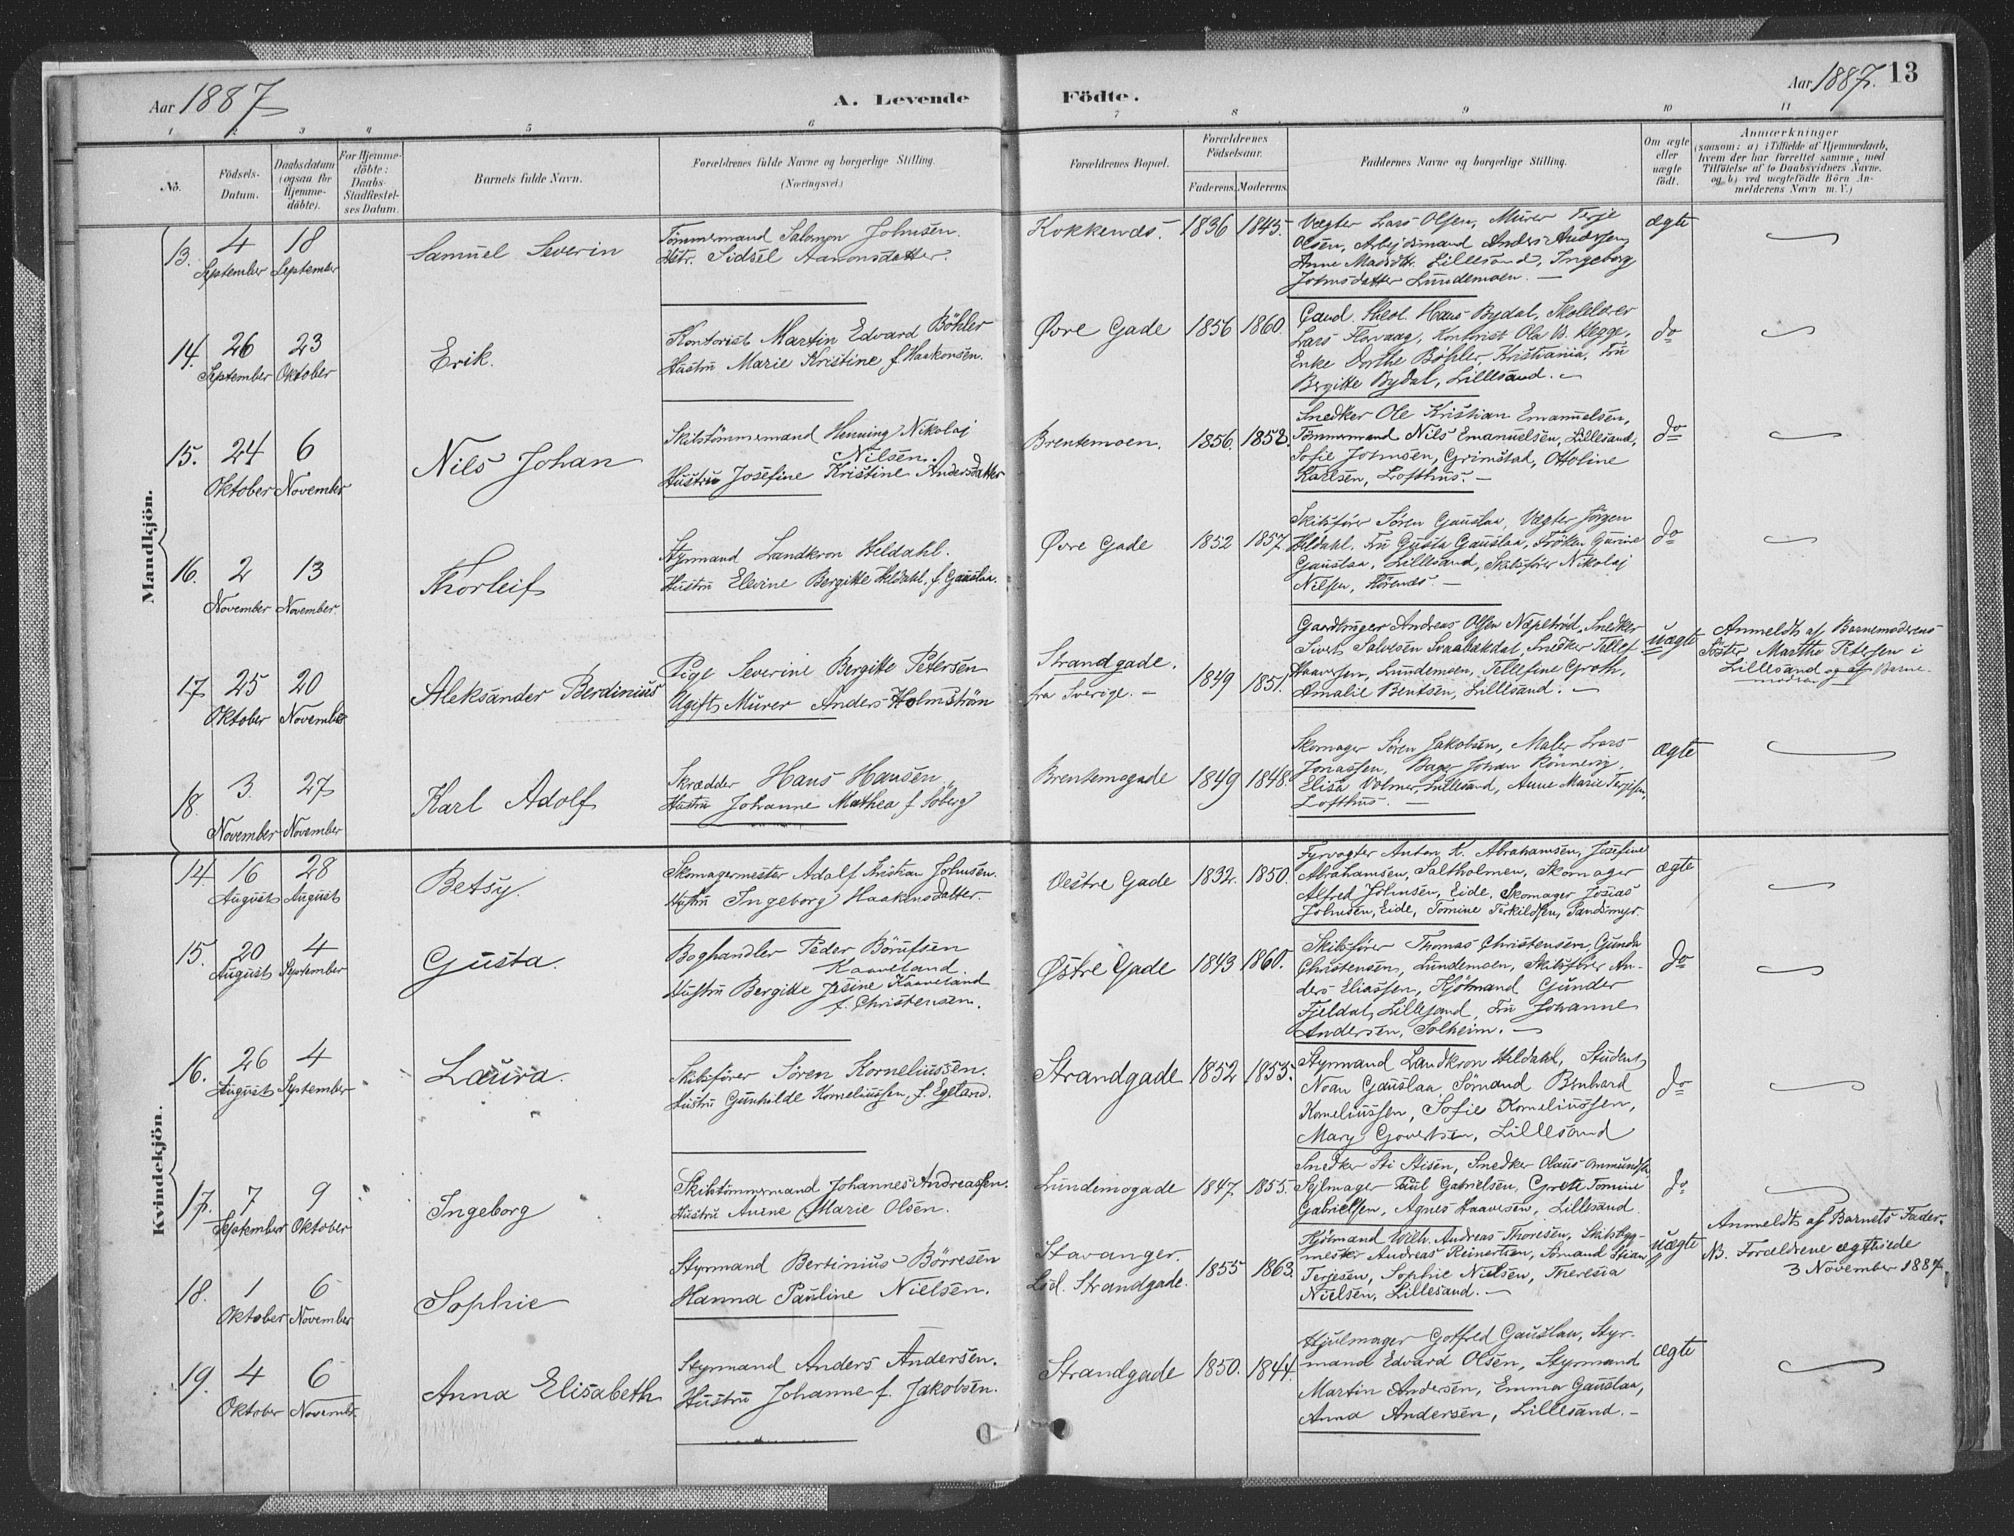 Aar 1887
A. Levende Födte.
Aar 1887. 13
1 2 3 4 5 6 7 8 9 10 11
No.
Födsels-Datum.
Daabsdatum (ogsaa for Hjemme-döbte).
For Hjemme-döbte: Daabs-Stadfæstel-ses Datum.
Barnets fulde Navn.
Forældrenes fulde Navne og borgerlige Stilling.
(Næringsvei.)
Forældrenes Bopæl.
Forældrenes Födselsaar.
Faderens. Moderens.
Faddernes Navne og borgerlige Stilling.
Om ægte eller uægte födt.
Anmærkninger
(saasom: a) i Tilfælde af Hjemmedaab,
hvem der har forrettet samme, med
Tilföielse af to Daabsvidners Navne,
og b) ved uægtefödte Börn An-
melderens Navn m. V.)
Mandkjön.
13. 4 September 18 September
Samuel Severin
Tømmermand Salomon Johnsen.
Hstr. Sidsel Aanonsdatter.
Kokkenes. 1836 1845.
Vægter Lars Olsen, Murer Terje
Olsen, Arbejdsmand Anders Andersen,
Anne Madsdtr. Lillesand, Ingeborg
Johnsdatter Lundemoen. —
ægte
14. 26 September 23 Oktober
Erik.
Kontorist Martin Edvard Böhler
Hustru Marie Kristine f. Haakonsen.
Øvre Gade 1856 1860
Cand. theol. Hans Bydal, Skolelærer
Lars Flovaag, Kontorist Ola Vs. Hegge,
Enke Dorthe Böhler, Kristiania, Fru
Bergitte Bydal, Lillesand. —
do
15. 24 Oktober 6 November
Nils Johan
Skibstömmermand Henning Nikolaj
Nilsen.
Hustru Josefine Kristine Andersdatter
Brentemoen. 1856. 1852.
Snedker Ole Kristian Emanuelsen,
Tømmermand Nils Emanuelsen, Lillesand,
Sofie Johnsen, Grimstad, Ottoline
Karlsen, Lofthus. —
do
16. 2 November 13 November
Thorleif
Styrmand Landkron Heldahl.
Hustru Elevine Bergitte Heldahl, f. Gauslaa.
Øvre Gade 1852 1857
Skibsfører Søren Gauslaa, Vægter Jörgen
Heldahl. Fru Gusta Gauslaa, Fröken Gurine
Gauslaa, Lillesand, Skibsfører Nikolaj
Nilsen, —
do
17 25 Oktober 20 November
Aleksander Berdinius
Pige Severine Bergitte Petersen
Ugift Murer Anders Holmström
Strandgade.
fra Sverige. — 1849 1851
Gaardbruger Andreas Olsen Næpetröd, Snedker
Sivert Salvesen Svaabakdal, Snedker Tellef
Haavorsen, Lundemoen, Tellefine Groth,
Amalie Bentsen, Lillesand. —
uægte
Anmeldt af Barnemoderens
Söster Marthe Petersen i
Lillesand og af Barne-
moderen
18. 3. November 27 November
Karl Adolf
Skrædder Hans Hansen
Hustru Johanne Mathea f. Söberg
Brentemogade 1849 1848.
Skomager Søren Jakobsen, Maler Lars
Jonassen, Bager Johan Rönnevig,
Elisa Volmer, Lillesand, Anne Marie Terjesen,
Lofthus. —
ægte
Kvindekjön.
14. 16 August 28 August
Betsy.
Skomagermester Adolf Kristian Johnsen.
Hustru Ingeborg Haakensdatter.
Vestre Gade 1832. 1850.
Fyrvogter Anton K. Abrahamsen, Josefine
Abrahamsen, Saltholmen, Skomager
Alfred Johnsen, Eide, Skomager Josias
Johnsen, Eide, Tomine Terkildsen, Sandsmyr.
ægte
15. 20 August 4 September
Gusta.
Boghandler Peder Börufsen
Kaaveland.
Hustru Bergitte Jesine Kaaveland
f. Christensen.
Østre Gade 1843 1860.
Skibsfører Thomas Christensen, Gunda
Christensen, Lundemoen, Skibsfører An-
ders Eliassen, Kjömand Gunder
Fjeldal, Lillesand, Fru Johanne
Andersen, Solheim. —
do
16. 26 August 4 September
Laura.
Skibsfører Sören Korneliussen.
Hustru Gunhilde Korneliussen, f. Egeland.
Strandgade 1852 1853.
Styrmand Landkron Heldahl, Student
Noan Gauslaa, Sömand Bernhard
Korneliussen, Sofie Korneliussen,
Mary Govertsen, Lillesand
do
17. 7 September 9 Oktober
Ingeborg
Skibstömmermand Johannes Andreassen.
Hustru Anne Marie Olsen.
Lundemogade 1847 1855.
Snedker Sti Stisen, Snedker Olaus Anmundsen,
Sejlmager Paul Gabrielsen, Grete Tomine
Gabrielsen, Agnes Haavesen, Lillesand.
do
18. 1 Oktober 6 November
Sophie
Styrmand Bertinius Börresen
Hanna Pauline Nielsen.
Stavanger.
Lsd. Strandgade. 1855 1863.
Kjömand Wilh. Andreas Thoresen, Skibsbyg-
mester Andreas Reinertsen, Sömand Stian
Terjesen, Sophie Nielsen, Theresia
Nielsen, Lillesand. —
uægte
Anmeldt af Barnets Fader.
NB. Forældrene ægteviede
3 November 1887.
19. 4 Oktober 6 November
Anna Elisabeth
Styrmand Anders Andersen.
Hustru Johanne f. Jakobsen.
Strandgade 1850. 1844.
Hjulmager Gotfred Gauslaa, Styr-
mand Edvard Olsen, Styrmand
Martin Andersen, Emma Gauslaa,
Anna Andersen, Lillesand. —
ægte